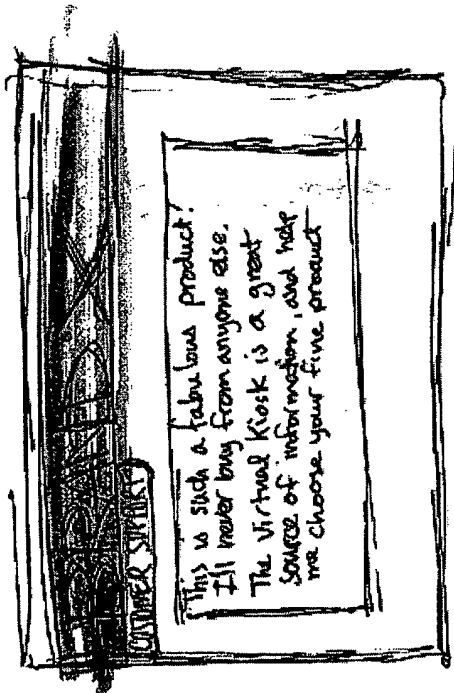 CUSTOMER SUPPORT
This is such a fabulous product!
I'll never buy from anyone else.
The Virtual Kiosk is a great
source of information, and help
me choose your fine product